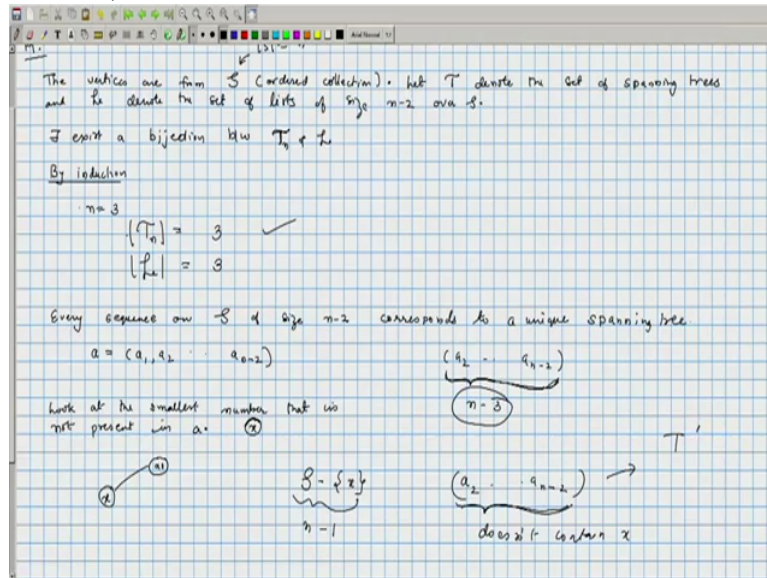 Pf.
|S| = n
The vertices are from S (ordered collection). Let T denote the set of spanning trees
and L denote the set of lists of size n-2 over S.
∃ exist a bijection b/w Tn & L
By induction
n = 3
|Tn| = 3 ✓
|L| = 3
Every sequence on S of size n-2 corresponds to a unique spanning tree.
a = (a1, a2 · · an-2) (a2 · · an-2)
Look at the smallest number that is n-3
not present in a. x
T'
a1
x S - {x} (a2 · · an-2) →
n-1 doesn't contain x